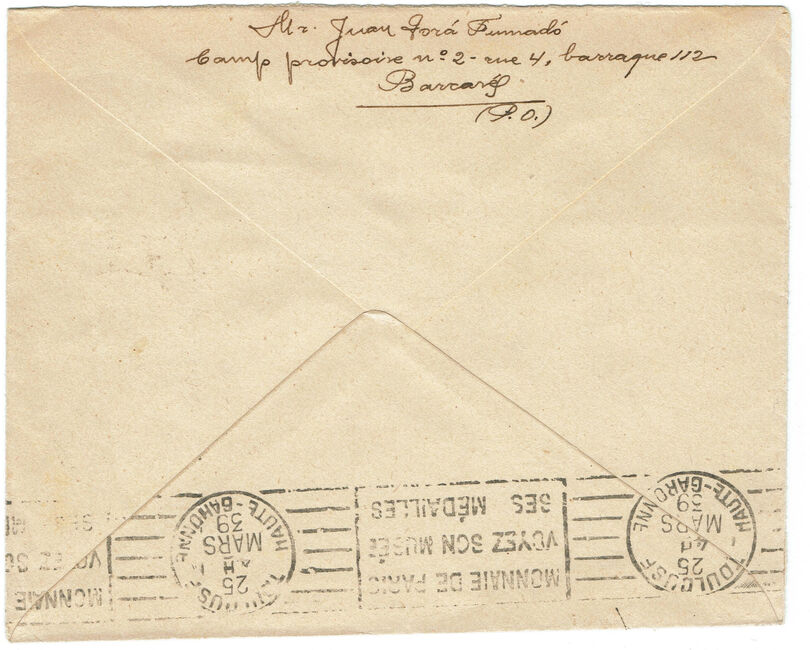 Mr. Juan Forá Fumadó
Camp provisoire nº 2 - rue 4, barraque 112
Barcarés
(P.O.)
MONNAIE DE PARIS
VOYEZ SON MUSÉE
SES MÉDAILLES
TOULOUSE
25
MARS
39
HAUTE-GARONNE
TOULOUSE
25
MARS
39
HAUTE-GARONNE
MONNAIE
VOYEZ SO
SES M